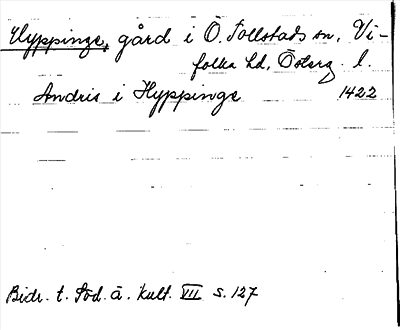 Hyppinge, gård i Ö. Tollstads sn, Vi-
folka hd, Österg. l.
Andris i Hyppinge 1422
Bidr. t. Söd. ä. kult. VII s. 127